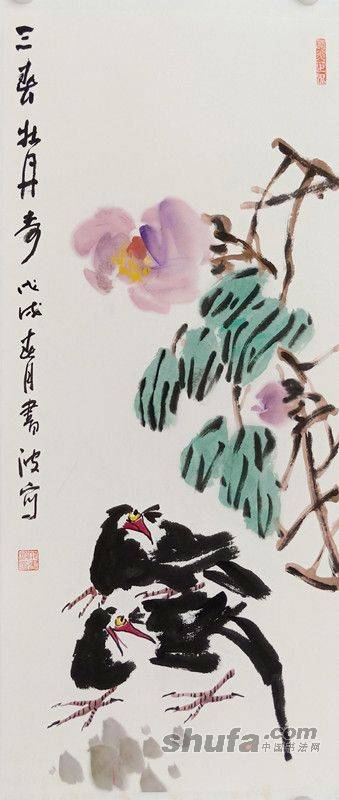 三春牡丹奇 戊戌春月書波寫
shufa.com
中国书法网